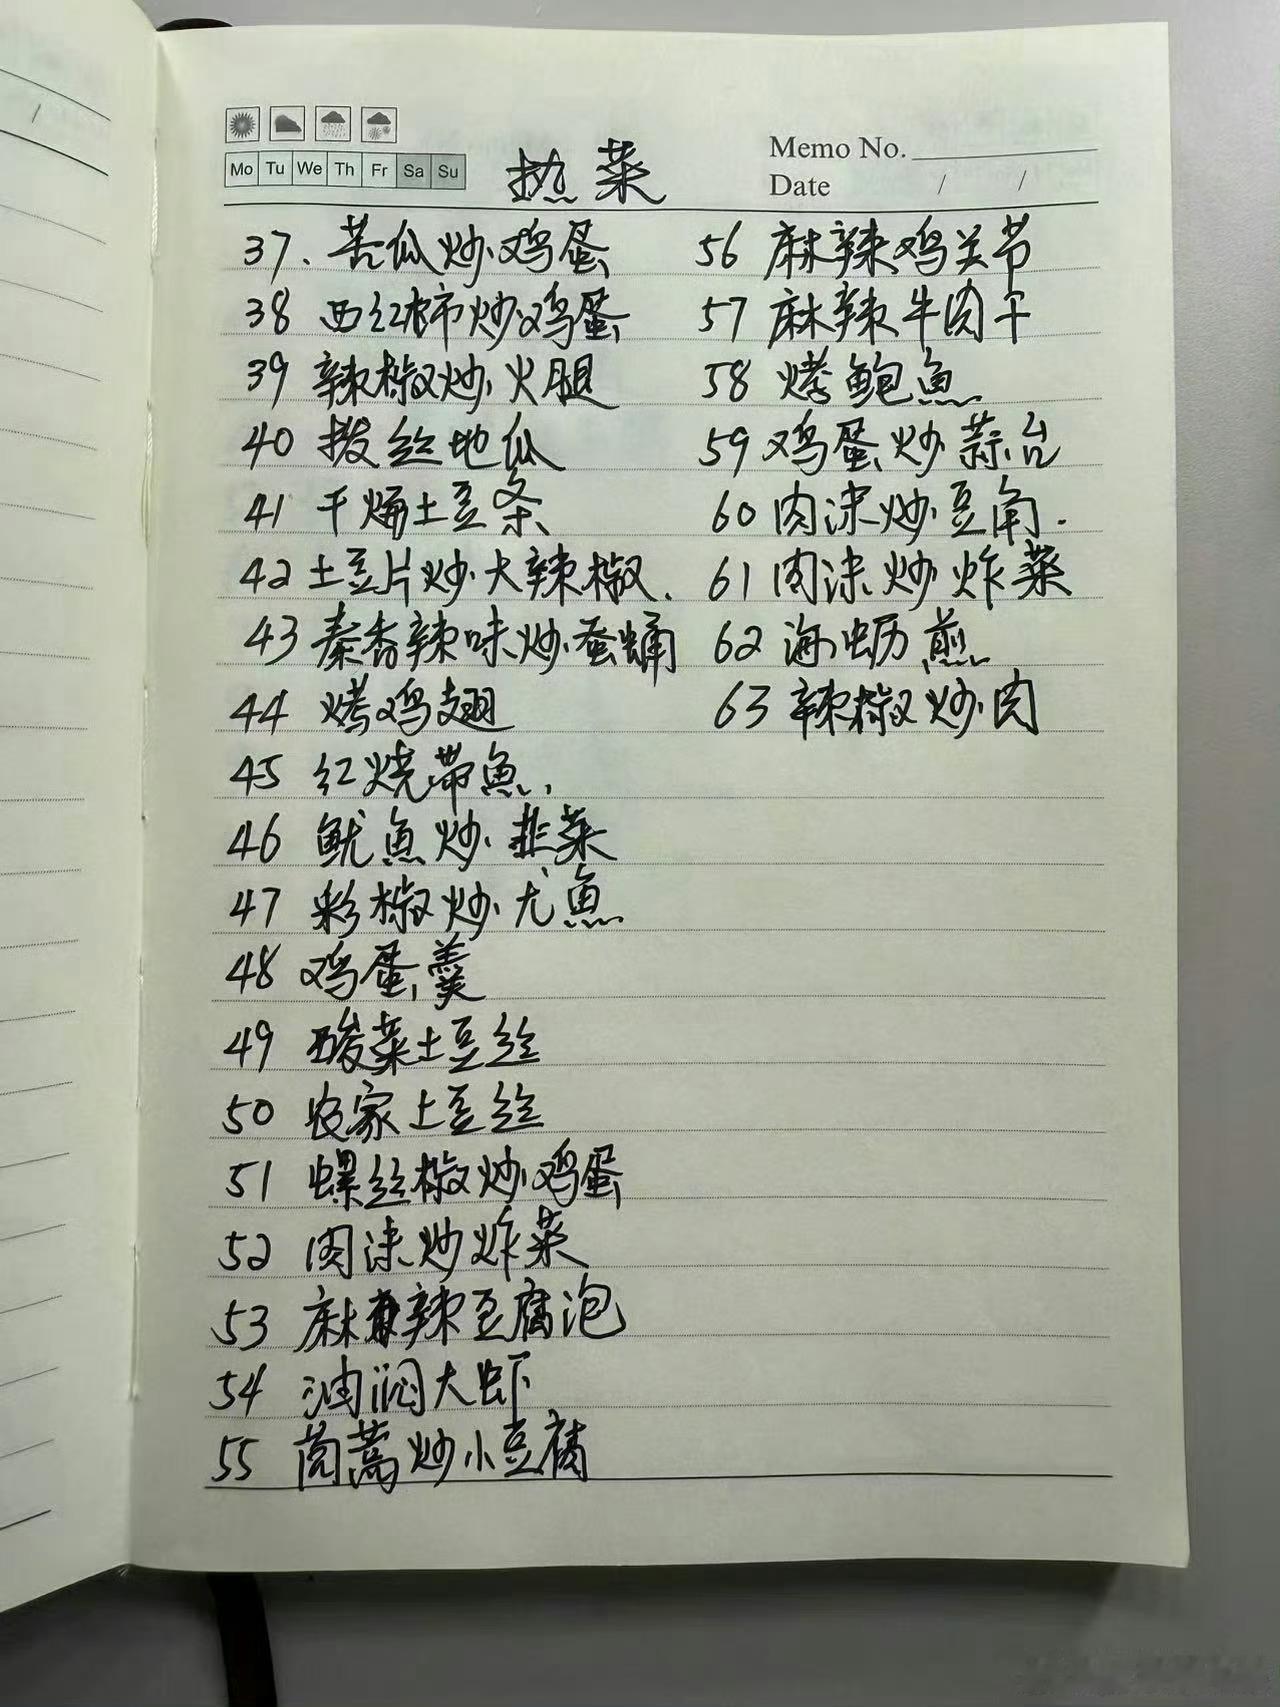 Mo Tu We Th Fr Sa Su
热菜
Memo No.
Date / /
37、苦瓜炒鸡蛋
38 西红柿炒鸡蛋
39 辣椒炒火腿
40 拨丝地瓜
41 干煸土豆条
42 土豆片炒大辣椒.
43 秦香辣味炒蚕蛹
44 烤鸡翅
45 红烧带魚.
46 鱿魚炒韭菜
47 彩椒炒尤魚
48 鸡蛋羹
49 酸菜土豆丝
50 农家土豆丝
51 螺丝椒炒鸡蛋
52 肉沫炒炸菜
53 麻辣豆腐泡
54 油闷大虾
55 茼蒿炒小豆腐
56 麻辣鸡关节
57 麻辣牛肉干
58 烤鲍魚
59 鸡蛋炒蒜台
60 肉沫炒豆角.
61 肉沫炒炸菜
62 海蛎煎
63 辣椒炒肉